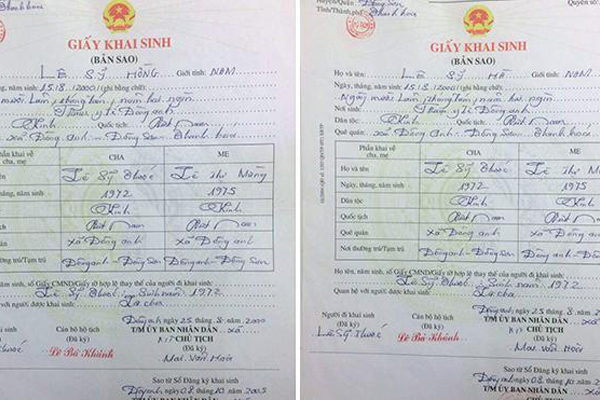 Thanh hoá
GIẤY KHAI SINH
(BẢN SAO)
LÊ SỸ HỒNG Giới tính: NAM
tháng, năm sinh: 15.8.2000 (ghi bằng chữ):
mười lăm, tháng tám, năm hai ngàn
Trạm y tế Đông anh
Kinh Quốc tịch: Việt Nam
xã Đông anh - Đông Sơn - Thanh hoá
Phần khai về cha, mẹ CHA MẸ
Lê Sỹ Thuốc Lê Thị Măng
tháng, năm sinh 1972 1975
Kinh Kinh
Việt Nam Việt Nam
quán xã Đông anh xã Đông anh
Nơi thường trú/Tạm trú Đông anh - Đông Sơn Đông anh - Đông Sơn
năm sinh, số Giấy CMND/Giấy tờ hợp lệ thay thế của người đi khai sinh:
Lê Sỹ Thuốc Sinh năm 1972
với người được khai sinh: Là cha
Đông anh, ngày 25 tháng 8 năm 2000
khai sinh Cán bộ hộ tịch T/M ỦY BAN NHÂN DÂN xã
(Đã ký) CHỦ TỊCH
Thuốc Lê Bá Khánh (Đã ký)
Mai Văn Hoà
Sao từ Sổ Đăng ký khai sinh
Đông anh, ngày 08 tháng 10 năm 2005
T/M ỦY BAN NHÂN DÂN
Huyện/Quận: Đông Sơn Quyển số:
Tỉnh/Thành phố: Thanh hoá
GIẤY KHAI SINH
(BẢN SAO)
Họ và tên: LÊ SỸ HÀ Giới tính: NAM
Ngày, tháng, năm sinh: 15.8.2000 (ghi bằng chữ):
Ngày mười lăm, tháng tám, năm hai ngàn
Nơi sinh: Trạm y tế Đông anh
Dân tộc: Kinh Quốc tịch: Việt Nam
Quê quán: xã Đông anh - Đông Sơn - Thanh hoá
Phần khai về cha, mẹ CHA MẸ
Họ và tên Lê Sỹ Thuốc Lê Thị
Ngày, tháng, năm sinh 1972 1975
Dân tộc Kinh Kinh
Quốc tịch Việt Nam Việt
Quê quán xã Đông anh xã Đông
Nơi thường trú/Tạm trú Đông anh - Đông Sơn Đông anh - Đông
Họ tên, năm sinh, số Giấy CMND/Giấy tờ hợp lệ thay thế của người đi khai sinh:
Lê Sỹ Thuốc Sinh năm 1972
Quan hệ với người được khai sinh: Là cha
Đông anh, ngày 25 tháng 8
Người đi khai sinh Cán bộ hộ tịch T/M ỦY BAN NHÂN DÂN
(Đã ký) (Đã ký) CHỦ TỊCH
Lê Sỹ Thuốc Lê Bá Khánh (Đã ký)
Mai Văn Hoà
Sao từ Sổ Đăng ký khai sinh
Đông anh, ngày 08 tháng 10 năm
T/M ỦY BAN NHÂN DÂN